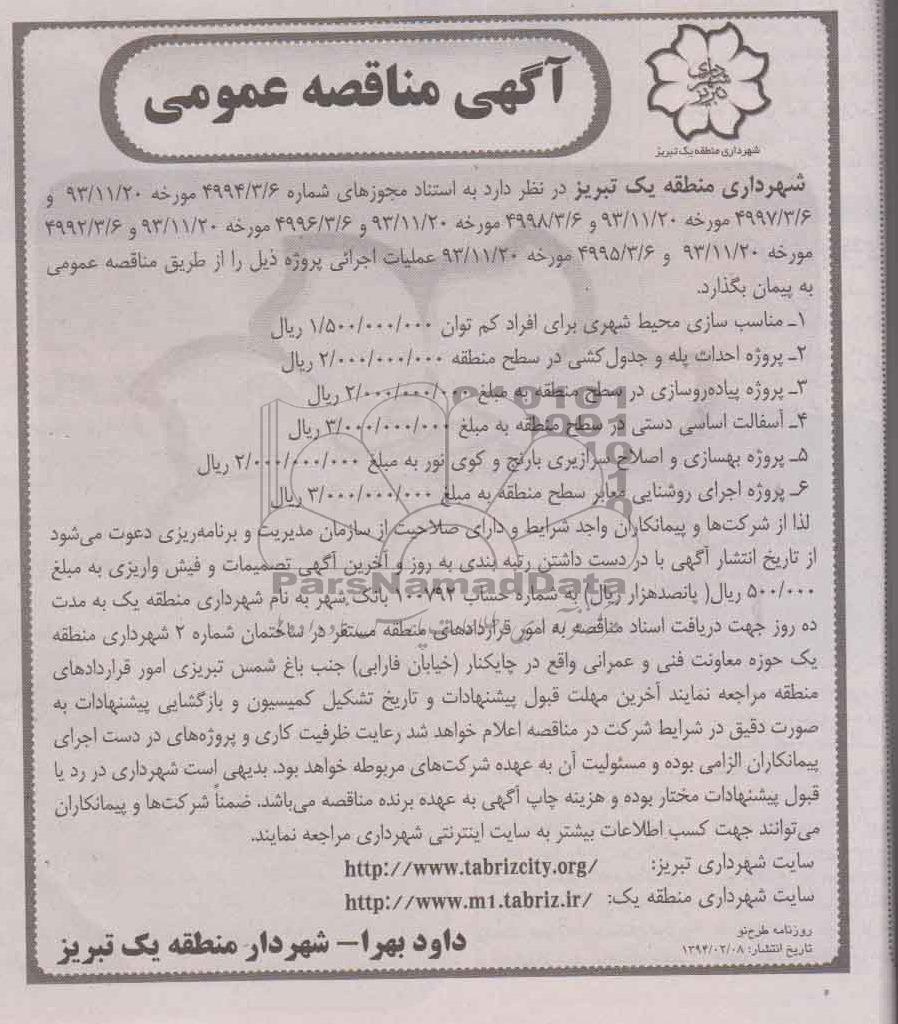 آگهی مناقصه عمومی
شهرداری تبریز
شهرداری منطقه یک تبریز
شهرداری منطقه یک تبریز در نظر دارد به استناد مجوزهای شماره ۴۹۹۴/۳/۶ مورخه ۹۳/۱۱/۲۰ و
۴۹۹۷/۳/۶ مورخه ۹۳/۱۱/۲۰ و ۴۹۹۸/۳/۶ مورخه ۹۳/۱۱/۲۰ و ۴۹۹۶/۳/۶ مورخه ۹۳/۱۱/۲۰ و ۴۹۹۲/۳/۶
مورخه ۹۳/۱۱/۲۰ و ۴۹۹۵/۳/۶ مورخه ۹۳/۱۱/۲۰ عملیات اجرائی پروژه ذیل را از طریق مناقصه عمومی
به پیمان بگذارد.
۱ـ مناسب سازی محیط شهری برای افراد کم توان ۱/۵۰۰/۰۰۰/۰۰۰ ریال
۲ـ پروژه احداث پله و جدول‌کشی در سطح منطقه ۲/۰۰۰/۰۰۰/۰۰۰ ریال
۳ـ پروژه پیاده‌روسازی در سطح منطقه به مبلغ ۲/۰۰۰/۰۰۰/۰۰۰ ریال
۴ـ آسفالت اساسی دستی در سطح منطقه به مبلغ ۳/۰۰۰/۰۰۰/۰۰۰ ریال
۵ـ پروژه بهسازی و اصلاح سرازیری بارنج و کوی نور به مبلغ ۲/۰۰۰/۰۰۰/۰۰۰ ریال
۶ـ پروژه اجرای روشنایی معابر سطح منطقه به مبلغ ۳/۰۰۰/۰۰۰/۰۰۰ ریال
لذا از شرکت‌ها و پیمانکاران واجد شرایط و دارای صلاحیت از سازمان مدیریت و برنامه‌ریزی دعوت می‌شود
از تاریخ انتشار آگهی با در دست داشتن رتبه بندی به روز و آخرین آگهی تصمیمات و فیش واریزی به مبلغ
۵۰۰/۰۰۰ ریال( پانصدهزار ریال) به شماره حساب ۱۰۰۷۹۲ بانک شهر به نام شهرداری منطقه یک به مدت
ده روز جهت دریافت اسناد مناقصه به امور قراردادهای منطقه مستقر در ساختمان شماره ۲ شهرداری منطقه
یک حوزه معاونت فنی و عمرانی واقع در چایکنار (خیابان فارابی) جنب باغ شمس تبریزی امور قراردادهای
منطقه مراجعه نمایند آخرین مهلت قبول پیشنهادات و تاریخ تشکیل کمیسیون و بازگشایی پیشنهادات به
صورت دقیق در شرایط شرکت در مناقصه اعلام خواهد شد رعایت ظرفیت کاری و پروژه‌های در دست اجرای
پیمانکاران الزامی بوده و مسئولیت آن به عهده شرکت‌های مربوطه خواهد بود. بدیهی است شهرداری در رد یا
قبول پیشنهادات مختار بوده و هزینه چاپ آگهی به عهده برنده مناقصه می‌باشد. ضمناً شرکت‌ها و پیمانکاران
می‌توانند جهت کسب اطلاعات بیشتر به سایت اینترنتی شهرداری مراجعه نمایند.
سایت شهرداری تبریز: http://www.tabrizcity.org/
سایت شهرداری منطقه یک: http://www.m1.tabriz.ir/
روزنامه طرح‌نو
تاریخ انتشار: ۱۳۹۴/۰۲/۰۸
داود بهرا– شهردار منطقه یک تبریز
ParsNamadData